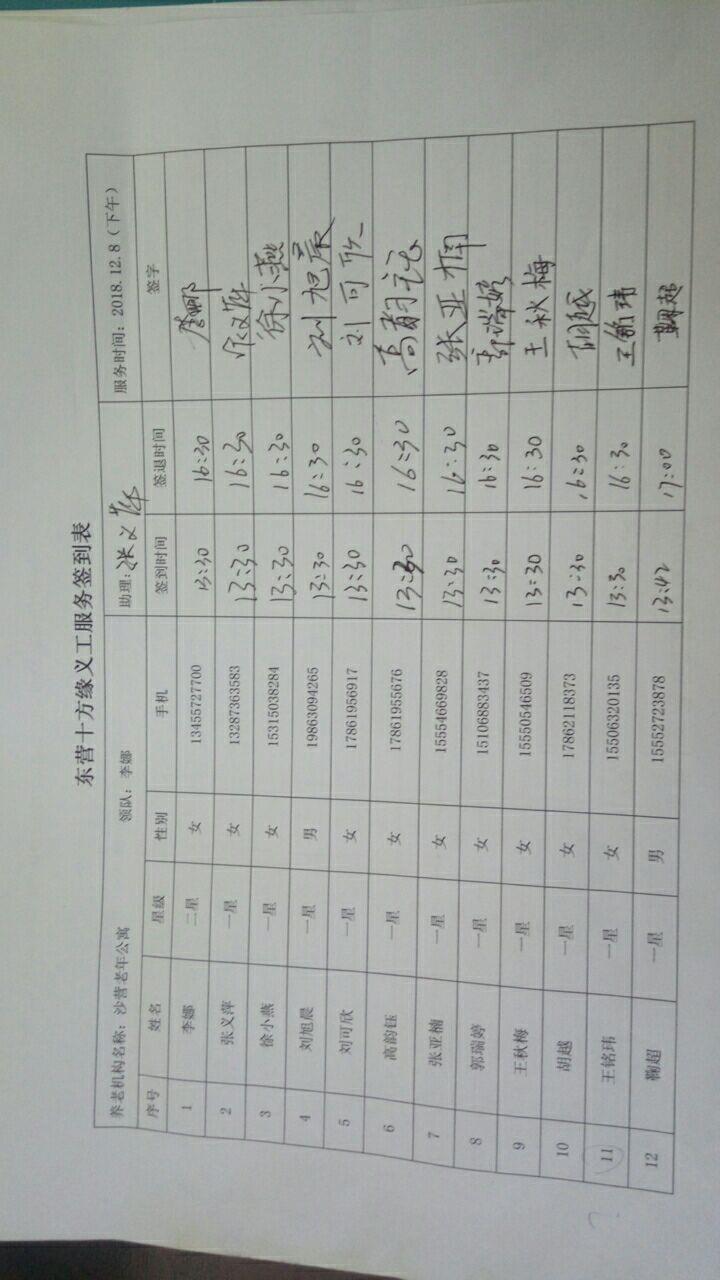 东营十方缘义工服务签到表
养老机构名称：沙营老年公寓 领队：李娜 助理：张义萍 服务时间：2018.12.8（下午）
序号 姓名 星级 性别 手机 签到时间 签退时间 签字
1 李娜 二星 女 13455727700 13:30 16:30 李娜
2 张义萍 一星 女 13287363583 13:30 16:30 张义萍
3 徐小燕 一星 女 15315038284 13:30 16:30 徐小燕
4 刘旭晨 一星 男 19863094265 13:30 16:30 刘旭晨
5 刘可欣 一星 女 17861956917 13:30 16:30 刘可欣
6 高韵钰 一星 女 17861955676 13:30 16:30 高韵钰
7 张亚楠 一星 女 15554669828 13:30 16:30 张亚楠
8 郭瑞婷 一星 女 15106883437 13:30 16:30 郭瑞婷
9 王秋梅 一星 女 15550546509 13:30 16:30 王秋梅
10 胡越 一星 女 17862118373 13:30 16:30 胡越
11 王铭玮 一星 女 15506320135 13:30 16:30 王铭玮
12 鞠超 一星 男 15552723878 13:42 17:00 鞠超